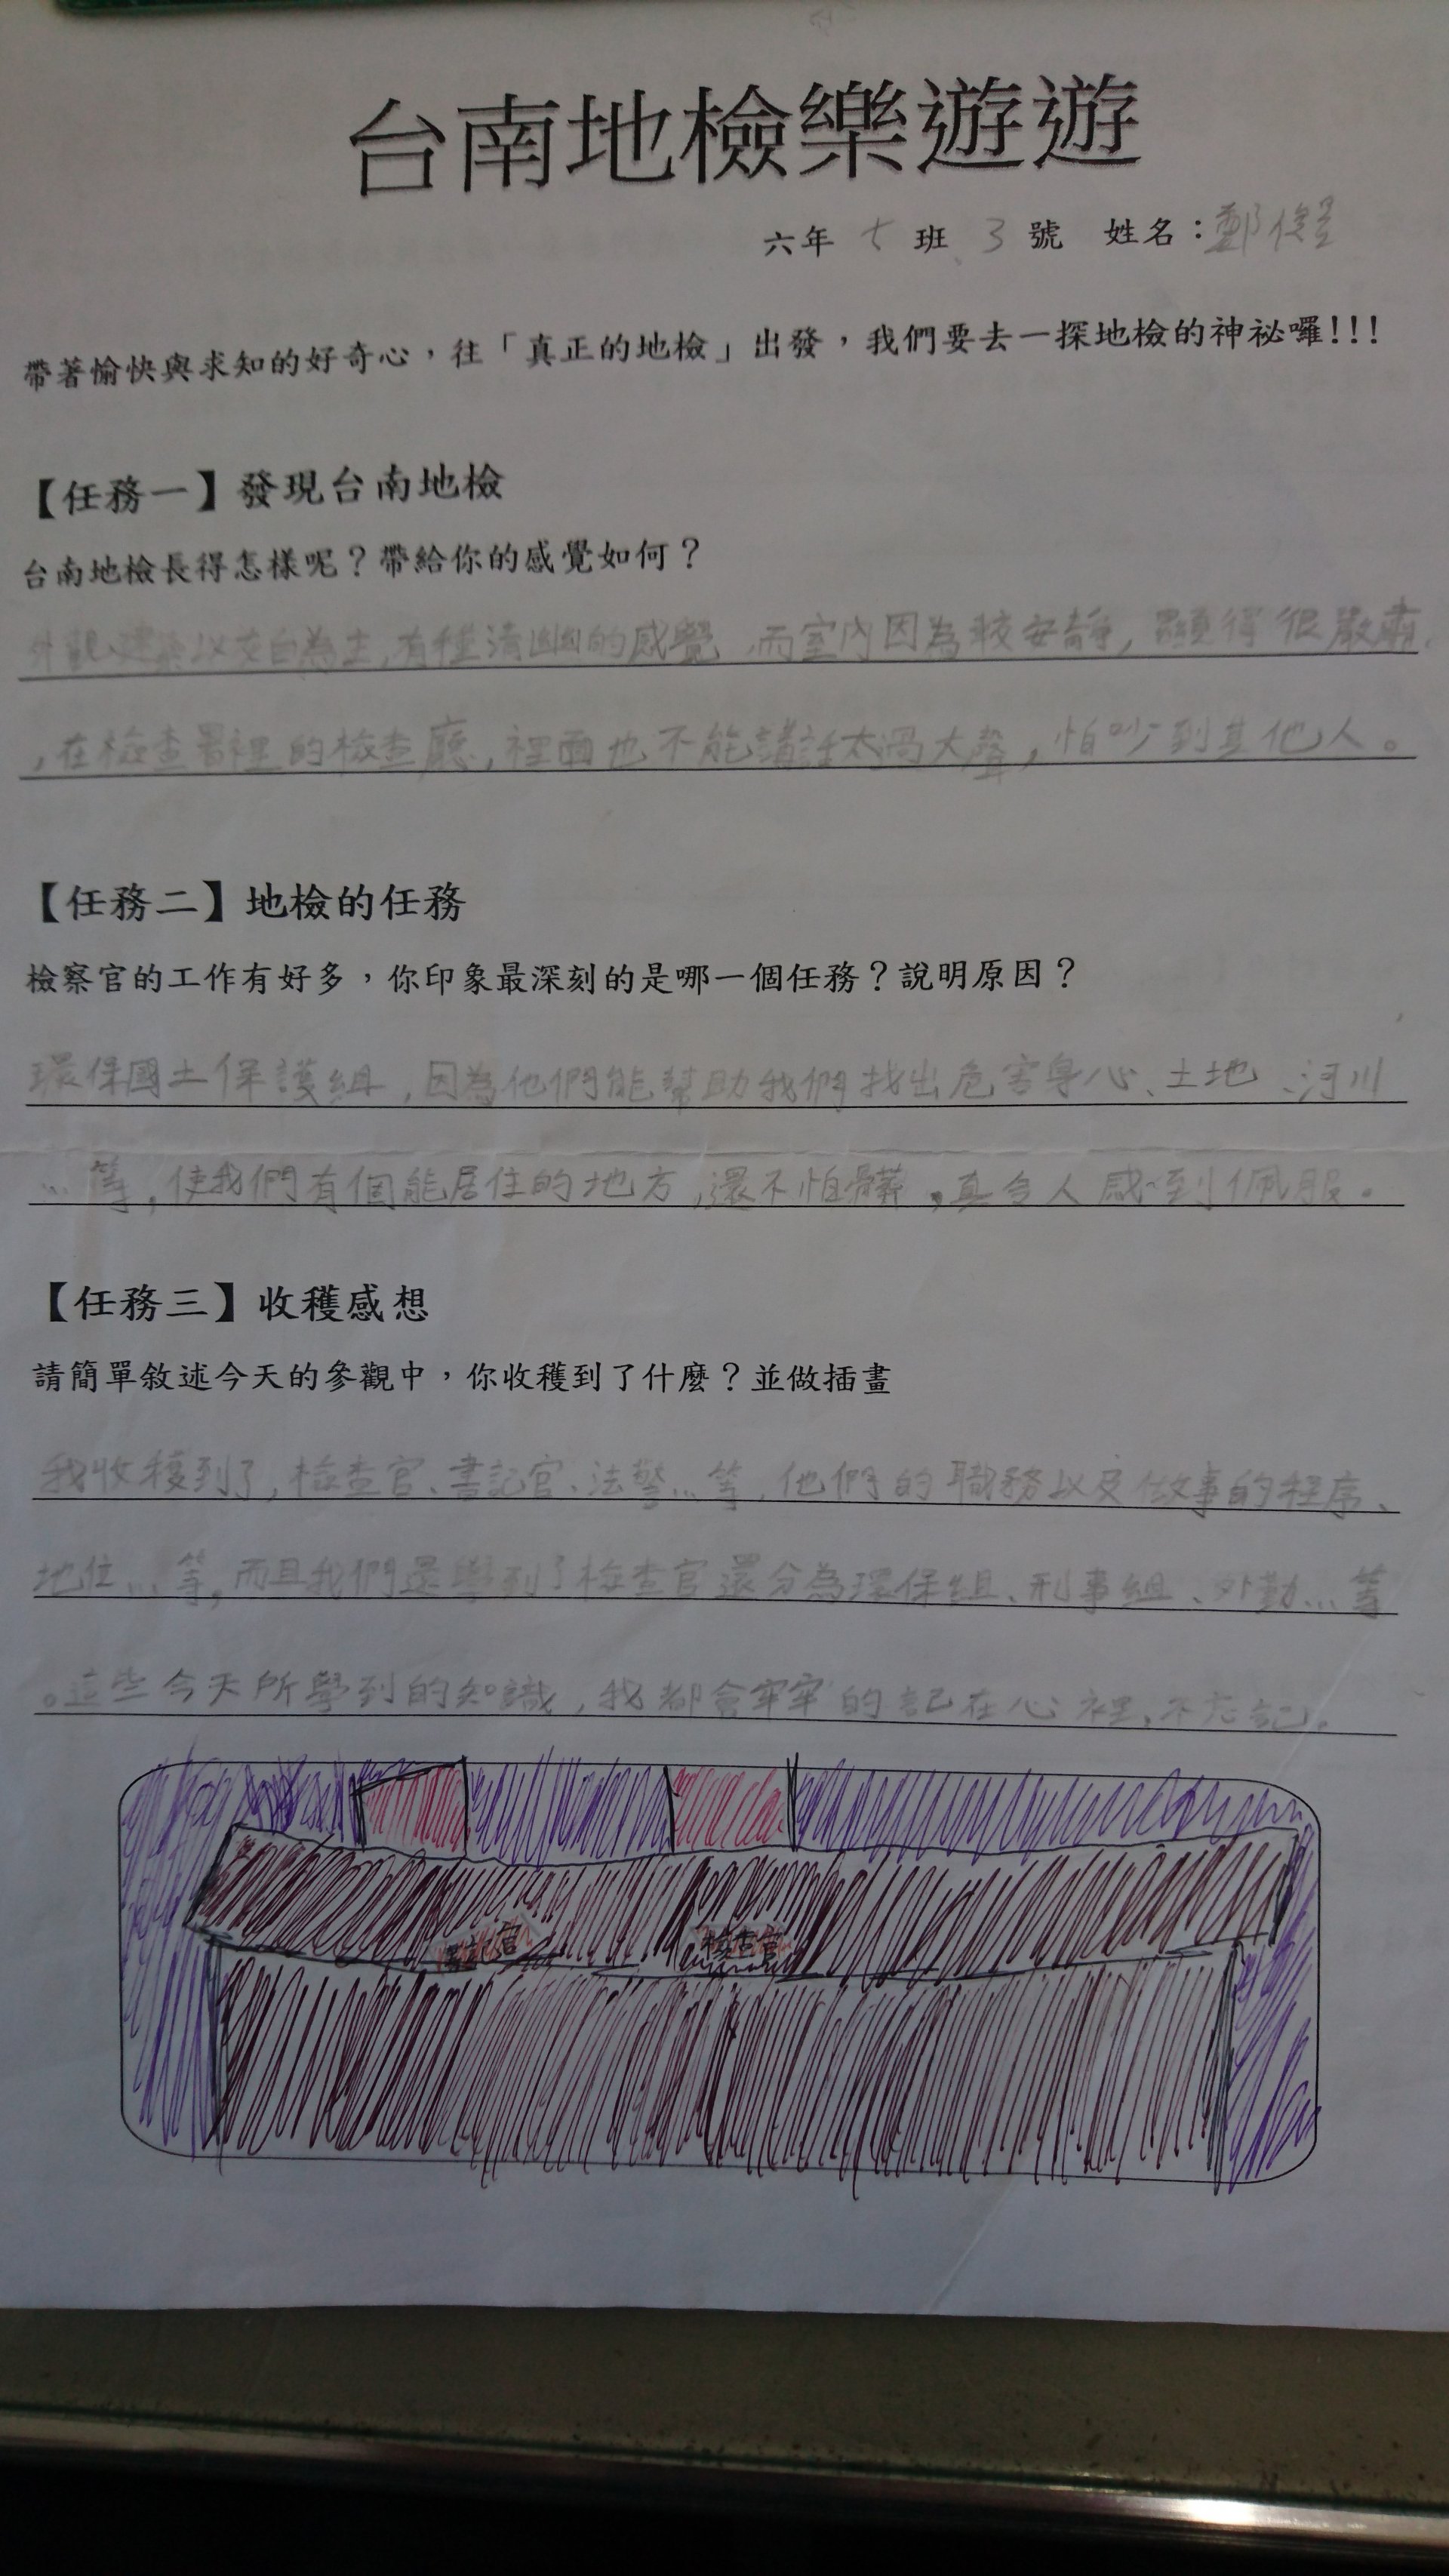 台南地檢樂遊遊
六年 七 班 3 號 姓名：鄭俊
帶著愉快與求知的好奇心，往「真正的地檢」出發，我們要去一探地檢的神祕囉!!!
【任務一】發現台南地檢
台南地檢長得怎樣呢？帶給你的感覺如何？
外觀建築以灰白為主,有種清幽的感覺,而室內因為較安靜,顯得很嚴肅
,在檢查署裡的檢查廳,裡面也不能講話太過大聲,怕吵到其他人。
【任務二】地檢的任務
檢察官的工作有好多，你印象最深刻的是哪一個任務？說明原因？
環保國土保護組,因為他們能幫助我們找出危害身心、土地、河川
…等,使我們有個能居住的地方,還不怕髒,真令人感到佩服。
【任務三】收穫感想
請簡單敘述今天的參觀中，你收穫到了什麼？並做插畫
我收穫到了,檢查官、書記官、法警…等,他們的職務以及做事的程序、
地位…等,而且我們還學到了檢查官還分為環保組、刑事組、外勤…等
。這些今天所學到的知識,我都會牢牢的記在心裡,不忘記。
書記官 檢查官